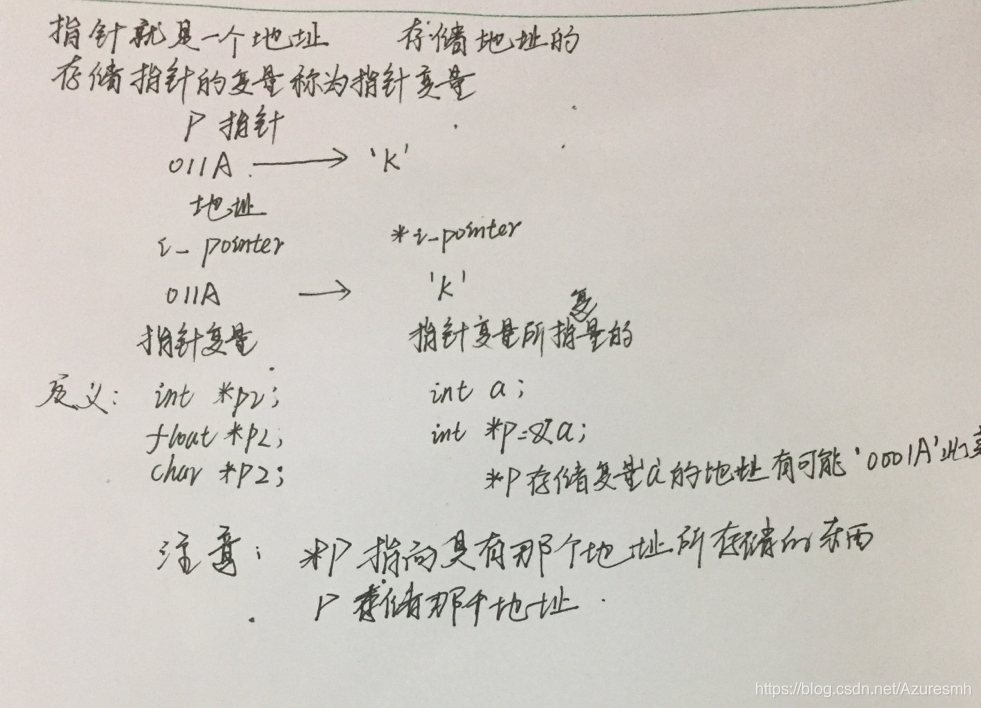 指针就是一个地址 存储地址的
存储指针的变量称为指针变量
P 指针
011A → 'K'
地址
i_pointer *i_pointer
011A → 'K'
变
指针变量 指针变量所指量的
定义: int *p2; int a;
float *p2; int *p=&a;
char *p2; *P存储变量a的地址有可能'0001A'此
注意: *P 指向具有那个地址所存储的东西
P 存储那个地址
https://blog.csdn.net/Azuresmh